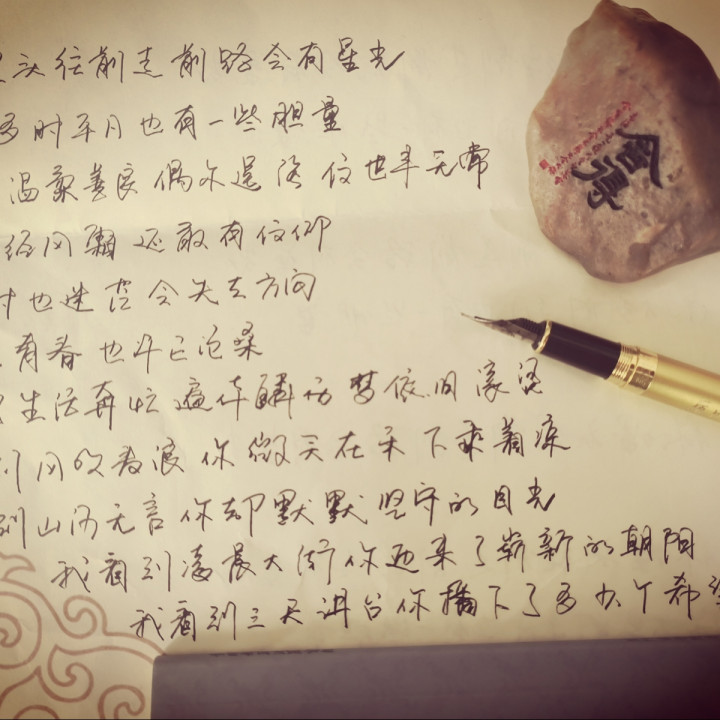 头往前走前路会有星光
多时平月也有一些胆量
温柔善良偶尔逞强 也许无常
经风颠还敢有信仰
时也迷茫会失去方向
青春也许已沧桑
生活奔忙遍体鳞伤梦依旧滚烫
风吹麦浪你微笑在天下乘着凉
到山河无言你却默默坚守的目光
我看到凌晨大街你迎来了崭新的朝阳
我看到三尺讲台你播下了多少个希望